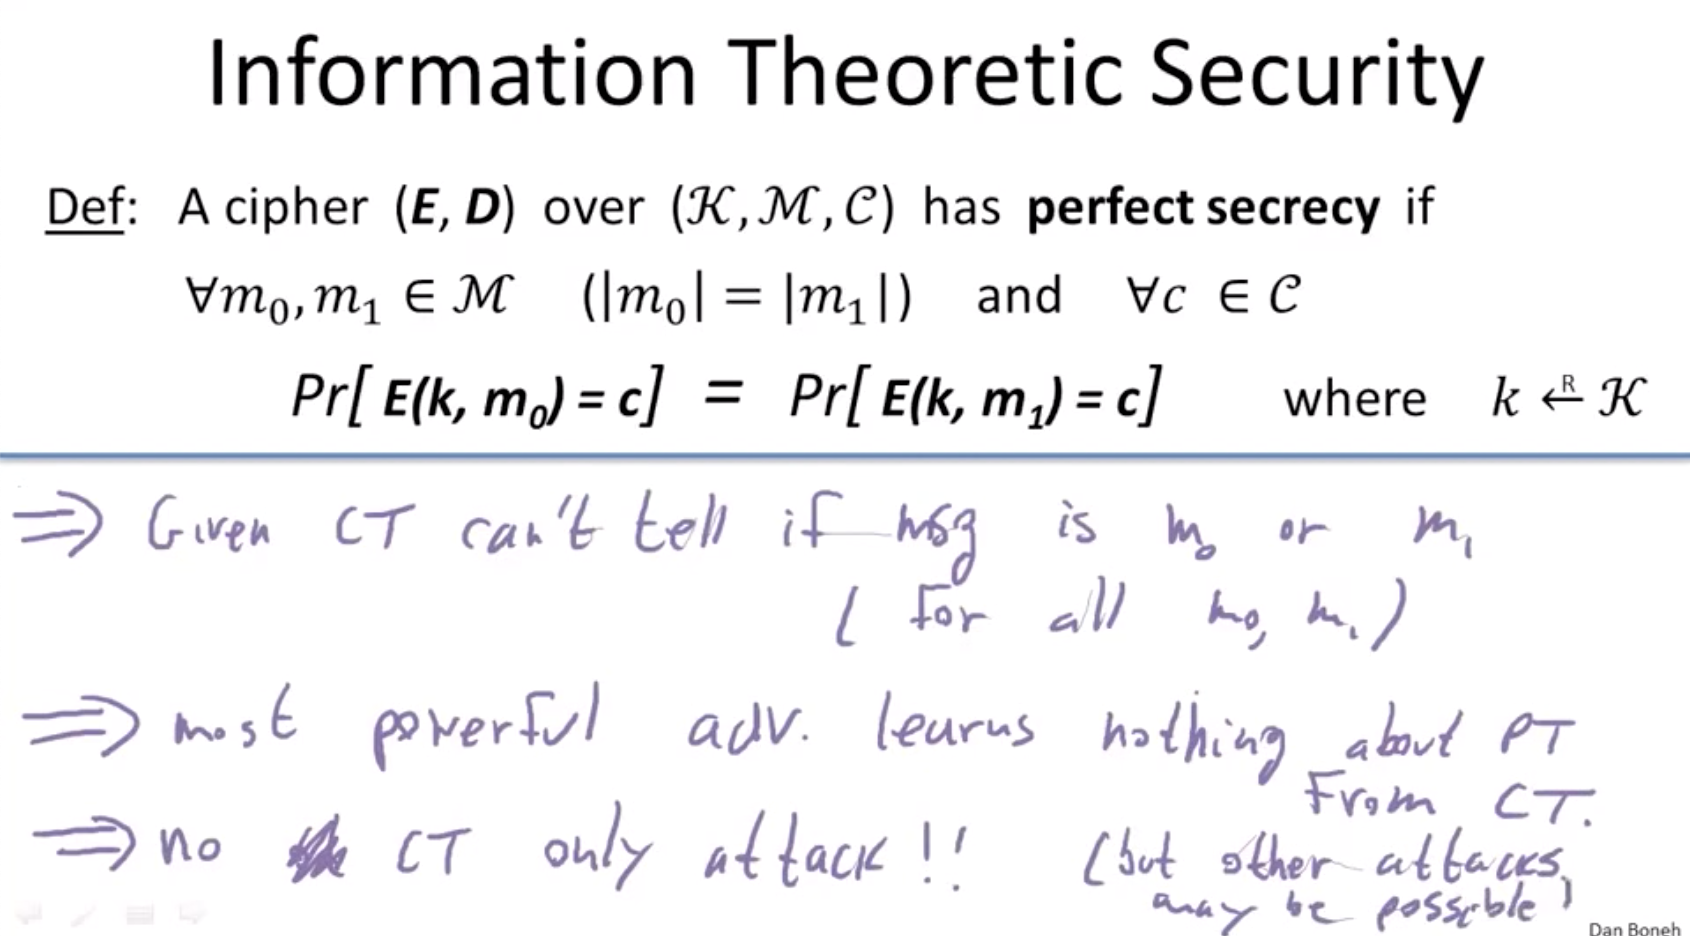 Information Theoretic Security
Def: A cipher (E, D) over (𝒦, ℳ, 𝒞) has perfect secrecy if
∀m₀, m₁ ∈ ℳ (|m₀| = |m₁|) and ∀c ∈ 𝒞
Pr[ E(k, m₀) = c] = Pr[ E(k, m₁) = c] where k ←ᴿ 𝒦
⟹ Given CT can't tell if msg is m₀ or m₁
( for all m₀, m₁ )
⟹ most powerful adv. learns nothing about PT
From CT.
⟹ no CT only attack!! (but other attacks
may be possible)
Dan Boneh